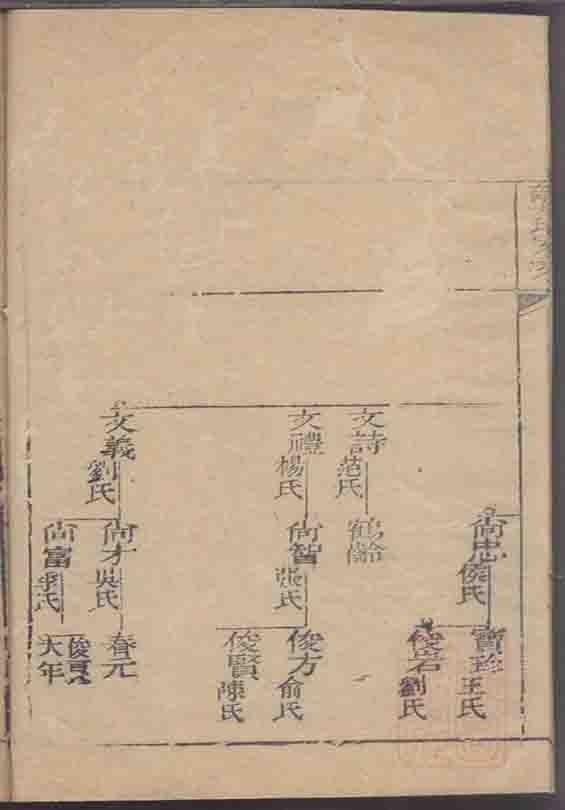 文詩
范氏
文禮
楊氏
文義
劉氏
尚忠
侯氏
鶴齡
尚智
張氏
尚才
吳氏
尚富
李氏
寶珍
王氏
俊若
劉氏
俊方
俞氏
俊賢
陳氏
春元
大年